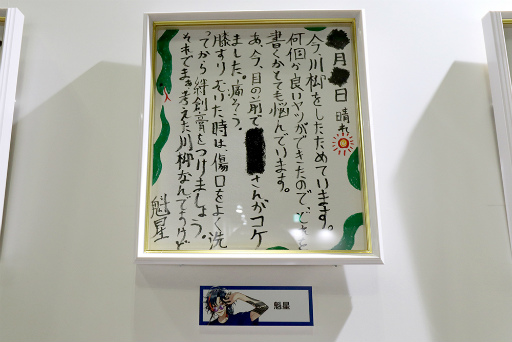 月 日 晴れ
今、川柳をしたためています。
何個か良いヤツができたので、どれを
書くかとても悩んでいます。
あ、今、目の前で さんがコケ
ました。痛そう。
膝すりむいた時は、傷口をよく洗
ってから絆創膏をつけましょう。
それでまぁ考えた川柳なんでょうけど
魁星
魁星